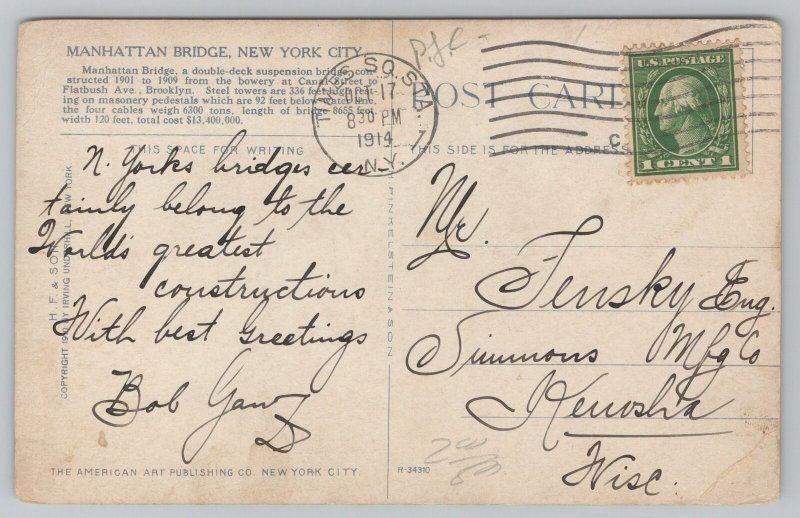 MANHATTAN BRIDGE, NEW YORK CITY.
Manhattan Bridge, a double-deck suspension bridge, con-
structed 1901 to 1909 from the bowery at Canal Street to
Flatbush Ave., Brooklyn. Steel towers are 336 feet high rest-
ing on masonry pedestals which are 92 feet below water line,
the four cables weigh 6300 tons, length of bridge 8655 feet
width 120 feet, total cost $13,400,000.
THIS SPACE FOR WRITING
N. Yorks bridges cer
tainly belong to the
World's greatest
constructions
With best greetings
Bob
COPYRIGHT BY IRVING UNDERHILL, NEW YORK.
H. F. & SON
THE AMERICAN ART PUBLISHING CO. NEW YORK CITY.
FINKELSTEIN & SON
R-34310
TIMES SQ. STA.
17
8 30 PM
1914
N.Y.
POST CARD
THIS SIDE IS FOR THE ADDRESS
C
U.S. POSTAGE
1 CENT 1
Mr.
Fensky Eng.
Simmons Mfg Co
Kenosha
Wisc.